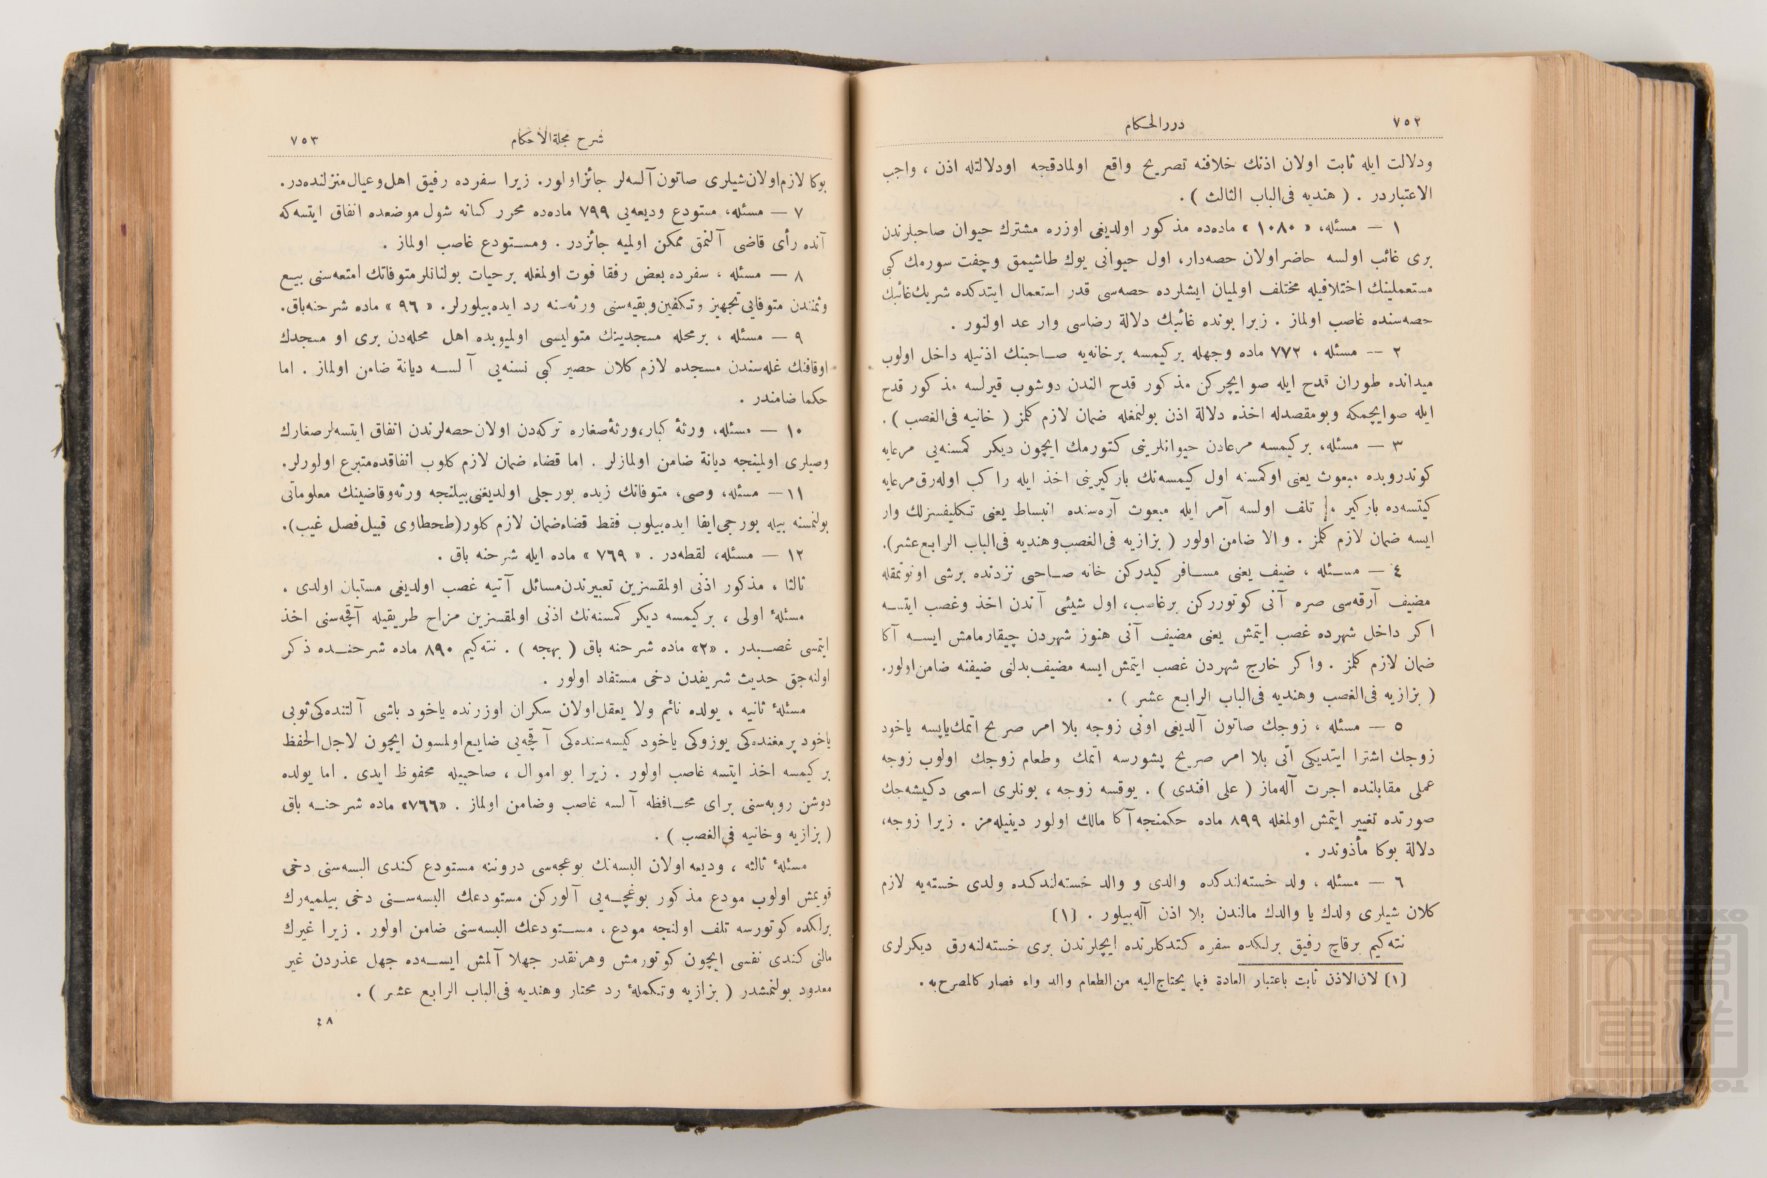 ٧٥٢
دررالحكام
ودلالت ايله ثابت اولان اذنك خلافنه تصريح واقع اولمادقجه اودلالتله اذن ، واجب
الاعتباردر . ( هنديه فى‌الباب الثالث ) .
١ — مسئله، « ١٠٨٠ » ماده‌ده مذكور اولديغى اوزره مشترك حيوان صاحبلرندن
برى غائب اولسه حاضراولان حصه‌دار، اول حيوانى يوك طاشيمق وچفت سورمك كبى
مستعملينك اختلافيله مختلف اولميان ايشلرده حصه‌سى قدر استعمال ايتدكده شريك‌غائبك
حصه‌سنده غاصب اولماز . زيرا بونده غائبك دلالة رضاسى وار عد اولنور .
٢ — مسئله ، ٧٧٢ ماده وجهله بركيمسه برخانه‌يه صاحبنك اذنيله داخل اولوب
ميدانده طوران قدح ايله صو ايچركن مذكور قدح الندن دوشوب قيرلسه مذكور قدح
ايله صوايچمكه وبومقصدله اخذه دلالة اذن بولنمغله ضمان لازم كلمز ( خانيه فى‌الغصب ) .
٣ — مسئله، بركيمسه مرعادن حيوانلرينى كتورمك ايچون ديكر كمسنه‌يى مرعايه
كوندروبده مبعوث يعنى اوكمسنه اول كيمسه‌نك باركيرينى اخذ ايله راكب اوله‌رق‌مرعايه
كيتسه‌ده باركير تلف اولسه آمر ايله مبعوث آره‌سنده انبساط يعنى تكليفسزلك وار
ايسه ضمان لازم كلمز . والا ضامن اولور ( بزازيه فى‌الغصب‌وهنديه فى‌الباب الرابع‌عشر).
٤ — مسئله ، ضيف يعنى مسافر كيدركن خانه صاحبى نزدنده برشى اونوتمقله
مضيف آرقه‌سى صره آنى كوتورركن برغاصب، اول شيئى آندن اخذ وغصب ايتسه
اكر داخل شهرده غصب ايتمش يعنى مضيف آنى هنوز شهردن چيقارمامش ايسه آكا
ضمان لازم كلمز . واكر خارج شهردن غصب ايتمش ايسه مضيف‌بدلنى ضيفنه ضامن‌اولور.
( بزازيه فى‌الغصب وهنديه فى‌الباب الرابع عشر ) .
٥ — مسئله ، زوجك صاتون آلديغى اونى زوجه بلا امر صريح اتمك‌ياپسه ياخود
زوجك اشترا ايتديكى اتى بلا امر صريح پشورسه اتمك وطعام زوجك اولوب زوجه
عملى مقابلنده اجرت آله‌ماز ( على افندى ) . يوقسه زوجه ، بونلرى اسمى دكيشه‌جك
صورتده تغيير ايتمش اولمغله ٨٩٩ ماده حكمنجه آكا مالك اولور دينيله‌مز . زيرا زوجه،
دلالة بوكا مأذوندر .
٦ — مسئله ، ولد خسته‌لندكده والدى و والد خسته‌لندكده ولدى خسته‌يه لازم
كلان شيلرى ولدك يا والدك مالندن بلا اذن آله‌بيلور . (١)
نته‌كيم برقاچ رفيق برلكده سفره كتدكلرنده ايچلرندن برى خسته‌لنه‌رق ديكرلرى
(١) لان‌الاذن ثابت باعتبار العادة فيما يحتاج‌اليه من‌الطعام والدواء فصار كالمصرح‌به .
شرح مجلةالاحكام
٧٥٣
بوكا لازم‌اولان‌شيلرى صاتون‌آلسه‌لر جائزاولور. زيرا سفرده رفيق اهل‌وعيال‌منزلنده‌در.
٧ — مسئله، مستودع وديعه‌يى ٧٩٩ ماده‌ده محرر كسانه شول موضعده انفاق ايتسه‌كه
آنده رأى قاضى آلنمق ممكن اولميه جائزدر . ومستودع غاصب اولماز .
٨ — مسئله ، سفرده بعض رفقا فوت اولمغله برحيات بولنانلرمتوفاتك امتعه‌سنى بيع
وثمندن متوفايى‌تجهيز وتكفين‌وبقيه‌سنى ورثه‌سنه رد ايده‌بيلورلر. « ٩٦ » ماده شرحنه‌باق.
٩ — مسئله ، برمحله مسجدينك متوليسى اولميوبده اهل محله‌دن برى او مسجدك
اوقافنك غله‌سندن مسجده لازم كلان حصير كبى نسنه‌يى آلسه ديانة ضامن اولماز . اما
حكما ضامندر .
١٠ — مسئله، ورثهٔ كبار، ورثهٔ‌صغاره تركه‌دن اولان‌حصه‌لرندن انفاق ايتسه‌لرصغارك
وصيلرى اولمينجه ديانة ضامن اولمازلر . اما قضاء ضمان لازم كلوب انفاقده‌متبرع اولورلر.
١١ — مسئله، وصى، متوفانك زيده بورجلى اولديغنى‌بيلنجه ورثه‌وقاضينك معلوماتى
بولنمسنه بيله بورجى‌ايفا ايده‌بيلوب فقط قضاءضمان لازم كلور(طحطاوى قبيل‌فصل غيب).
١٢ — مسئله، لقطه‌در . « ٧٦٩ » ماده ايله شرحنه باق .
ثالثا ، مذكور اذنى اولمقسزين تعبيرندن‌مسائل آتيه غصب اولديغى مستبان اولدى .
مسئلهٔ اولى ، بركيمسه ديكر كمسنه‌نك اذنى اولمقسزين مزاح طريقيله آقچه‌سنى اخذ
ايتمسى غصبدر . «٢» ماده شرحنه باق ( بهجه ) . نته‌كيم ٨٩٠ ماده شرحنده ذكر
اولنه‌جق حديث شريفدن دخى مستفاد اولور .
مسئلهٔ ثانيه ، يولده نائم ولا يعقل‌اولان سكران اوزرنده ياخود باشى آلتنده‌كى‌ثوبى
ياخود پرمغنده‌كى يوزوكى ياخود كيسه‌سنده‌كى آقچه‌يى ضايع‌اولمسون ايچون لاجل‌الحفظ
بركيمسه اخذ ايتسه غاصب اولور . زيرا بو اموال ، صاحبيله محفوظ ايدى . اما يولده
دوشن روبه‌سنى براى محافظه آلسه غاصب وضامن اولماز . «٧٦٦» ماده شرحنه باق
( بزازيه وخانيه فى‌الغصب ) .
مسئلهٔ ثالثه ، وديعه اولان البسه‌نك بوغچه‌سى دروننه مستودع كندى البسه‌سنى دخى
قويمش اولوب مودع مذكور بوغچه‌يى آلوركن مستودعك البسه‌سنى دخى بيلميه‌رك
برلكده كوتورسه تلف اولنجه مودع ، مستودعك البسه‌سنى ضامن اولور . زيرا غيرك
مالنى كندى نفسى ايچون كوتورمش وهرنقدر جهلا آلمش ايسه‌ده جهل عذردن غير
معدود بولنمشدر ( بزازيه وتكملهٔ رد محتار وهنديه فى‌الباب الرابع عشر ) .
٤٨
TOYO BUNKO
東洋文庫